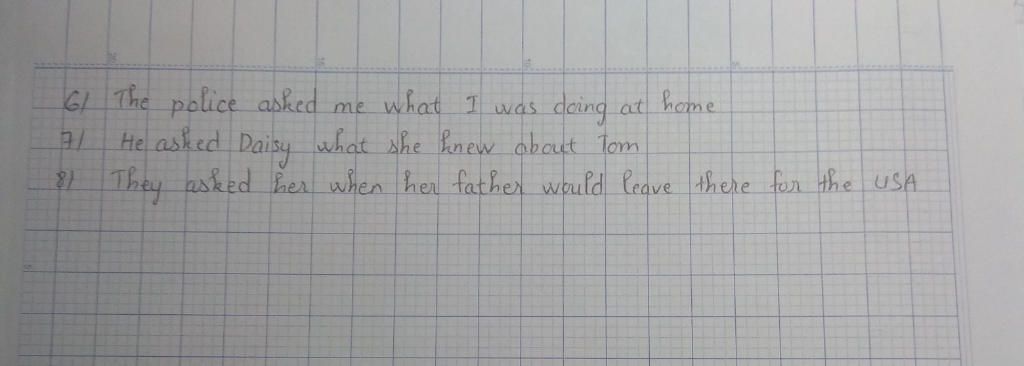 6/ The police asked me what I was doing at home
7/ He asked Daisy what she knew about Tom
8/ They asked her when her father would leave there for the USA